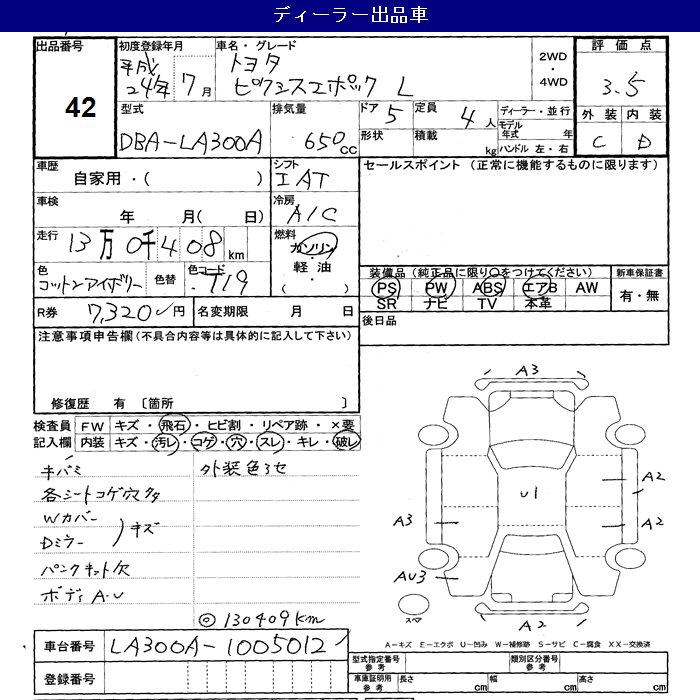 ディーラー出品車
出品番号
42
初度登録年月
平成
24年 7月
車名・グレード
トヨタ
ピクシスエポック L
2WD
・
4WD
評価点
3.5
外装 内装
C D
型式
DBA-LA300A
排気量
650cc
ドア 5
形状
定員 4人
積載 kg
ディーラー・並行
モデル年式 年
ハンドル 左・右
車歴
自家用・( )
シフト
IAT
セールスポイント (正常に機能するものに限ります)
車検
年 月( 日)
冷房
A/C
走行
13万0千408km
燃料
ガソリン
・
軽油
・
( )
色
コットンアイボリー
色替
色コード
T19
装備品(純正品に限り○をつけてください)
PS PW ABS エアB AW
SR ナビ TV 本革
新車保証書
有・無
R券 7,320円
名変期限 月 日
後日品
注意事項申告欄(不具合内容等は具体的に記入して下さい)
修復歴 有 〔箇所 〕
検査員記入欄
FW キズ・飛石・ヒビ割・リペア跡・×要
内装 キズ・汚レ・コゲ・穴・スレ・キレ・破レ
キバミ
外装色アセ
各シートコゲ穴クタ
Wカバー
Dミラー )キズ
パンクキット欠
ボディA・U
◎130409km
A3
U1
A2
A3
A2
AU3
スペア
A2
車台番号 LA300A-1005012
登録番号
A-キズ E-エクボ U-凹み W-補修跡 S-サビ C-腐食 XX-交換済
型式指定番号
参考
類別区分番号
参考
車庫証明用
参考
長さ cm
幅 cm
高さ cm